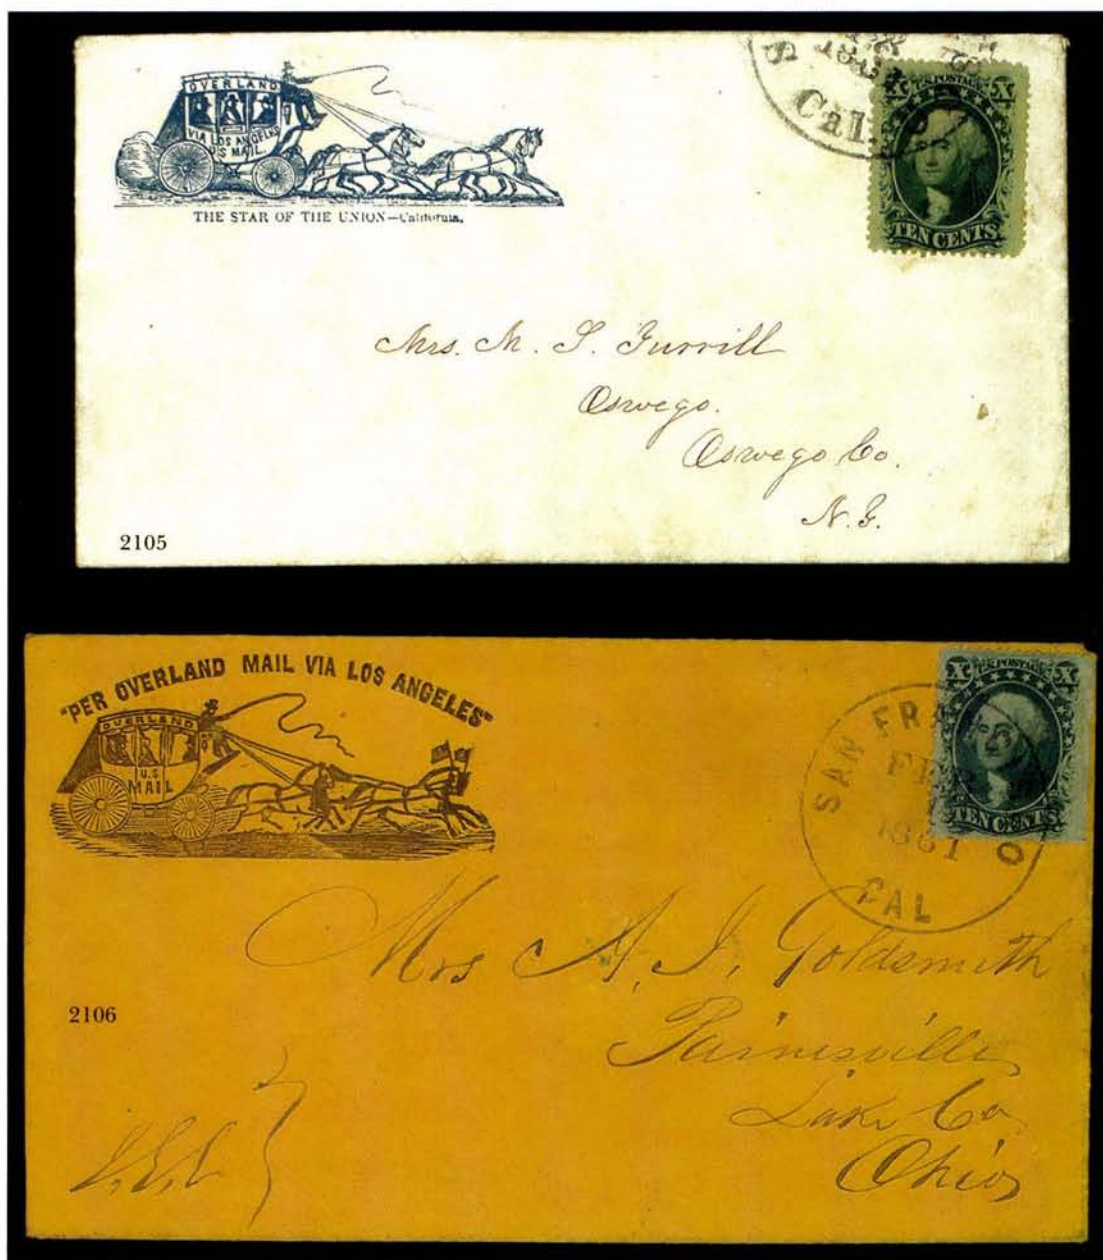 OVERLAND
VIA LOS ANGELES
U S MAIL.
THE STAR OF THE UNION—California.
Cal
X U.S. POSTAGE X
TEN CENTS
Mrs. M. S.
Oswego.
Oswego Co.
N.Y.
2105
"PER OVERLAND MAIL VIA LOS ANGELES"
OVERLAND
U.S
MAIL
SAN FRA O
FEB
1861
CAL
X U.S. POSTAGE X
TEN CENTS
Mrs A. J. Goldsmith
Painesville
Lake Co
Ohio
2106